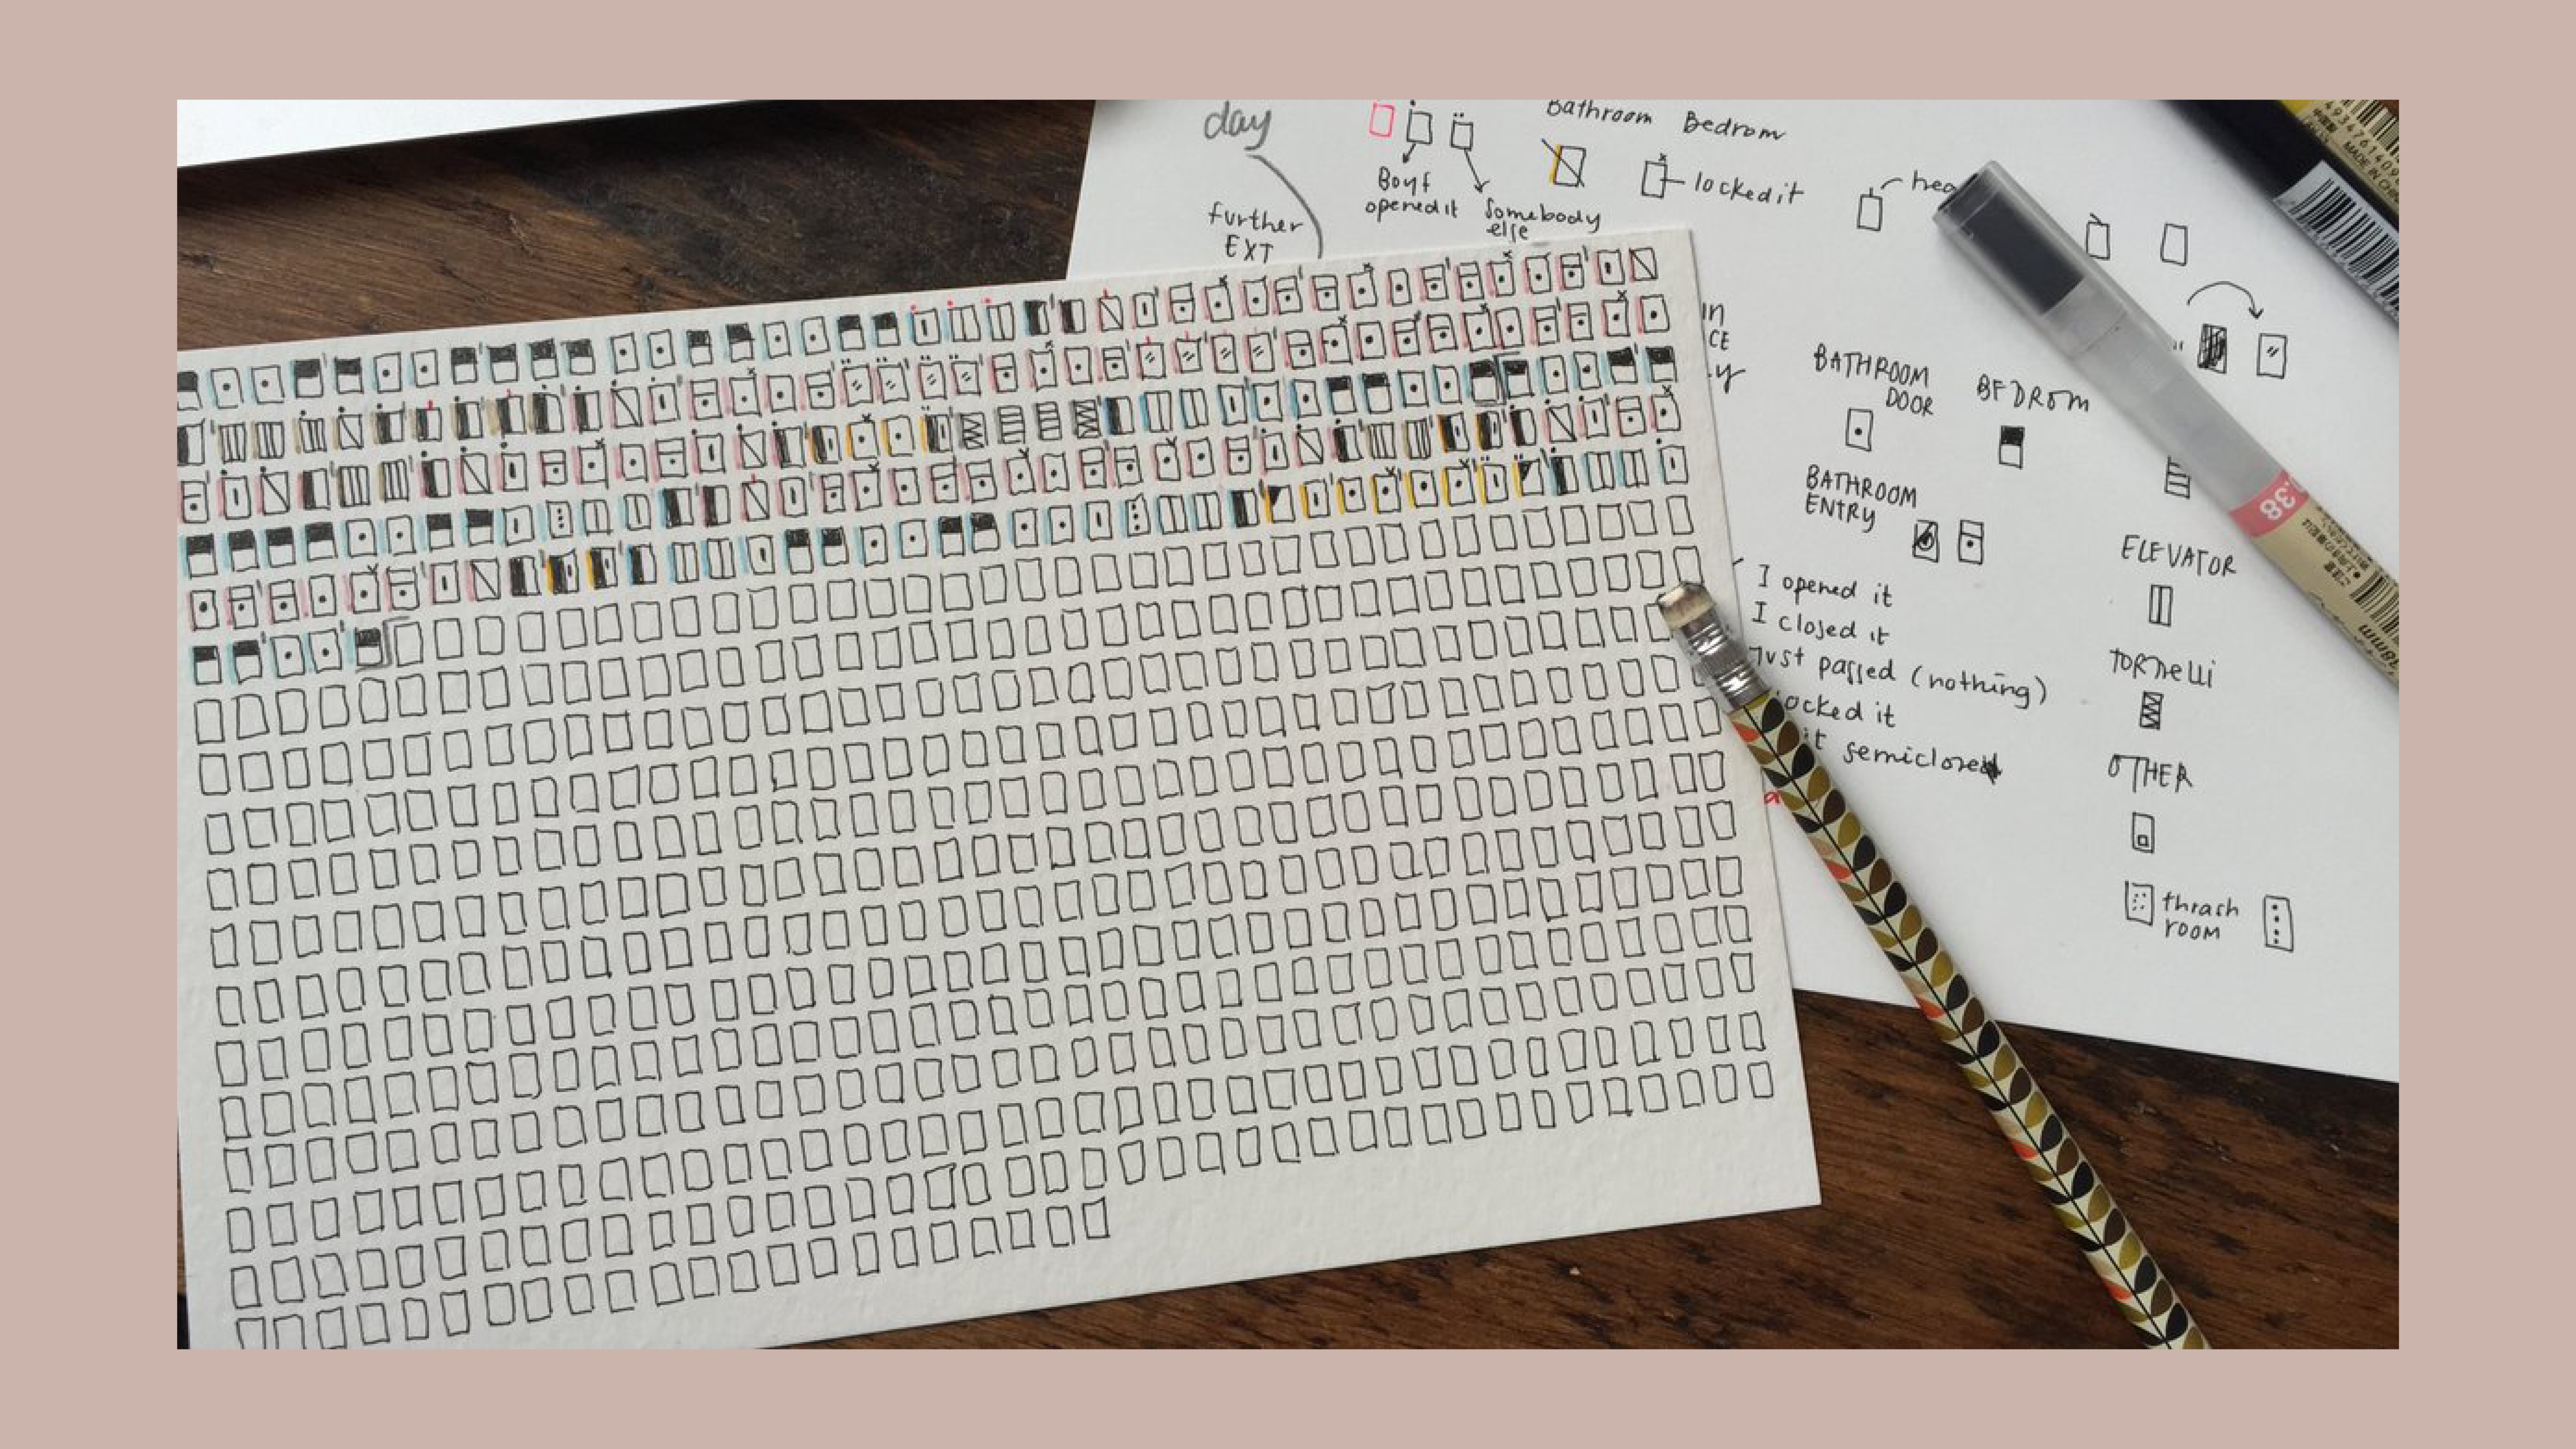 day
Bathroom Bedrom
Boyf
opened it
Somebody
else
locked it
further
EXT
BATHROOM
DOOR
BEDROM
BATHROOM
ENTRY
ELEVATOR
I opened it
I closed it
passed (nothing)
it semiclosed
TORNELLI
OTHER
thrash
room
MADE IN